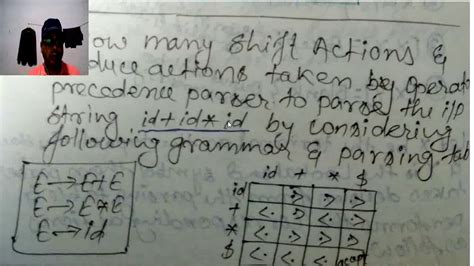 ow many shift Actions &
duce actions taken by operat
precedence parser to parse the i/p
string id+id*id by considering
following grammar & parsing tab
E → E+E
E → E*E
E → id
id + * $
id ⋗ ⋗ ⋗
+ ⋖ ⋗ ⋖ ⋗
* ⋖ ⋗ ⋗ ⋗
$ ⋖ ⋖ ⋖ accept